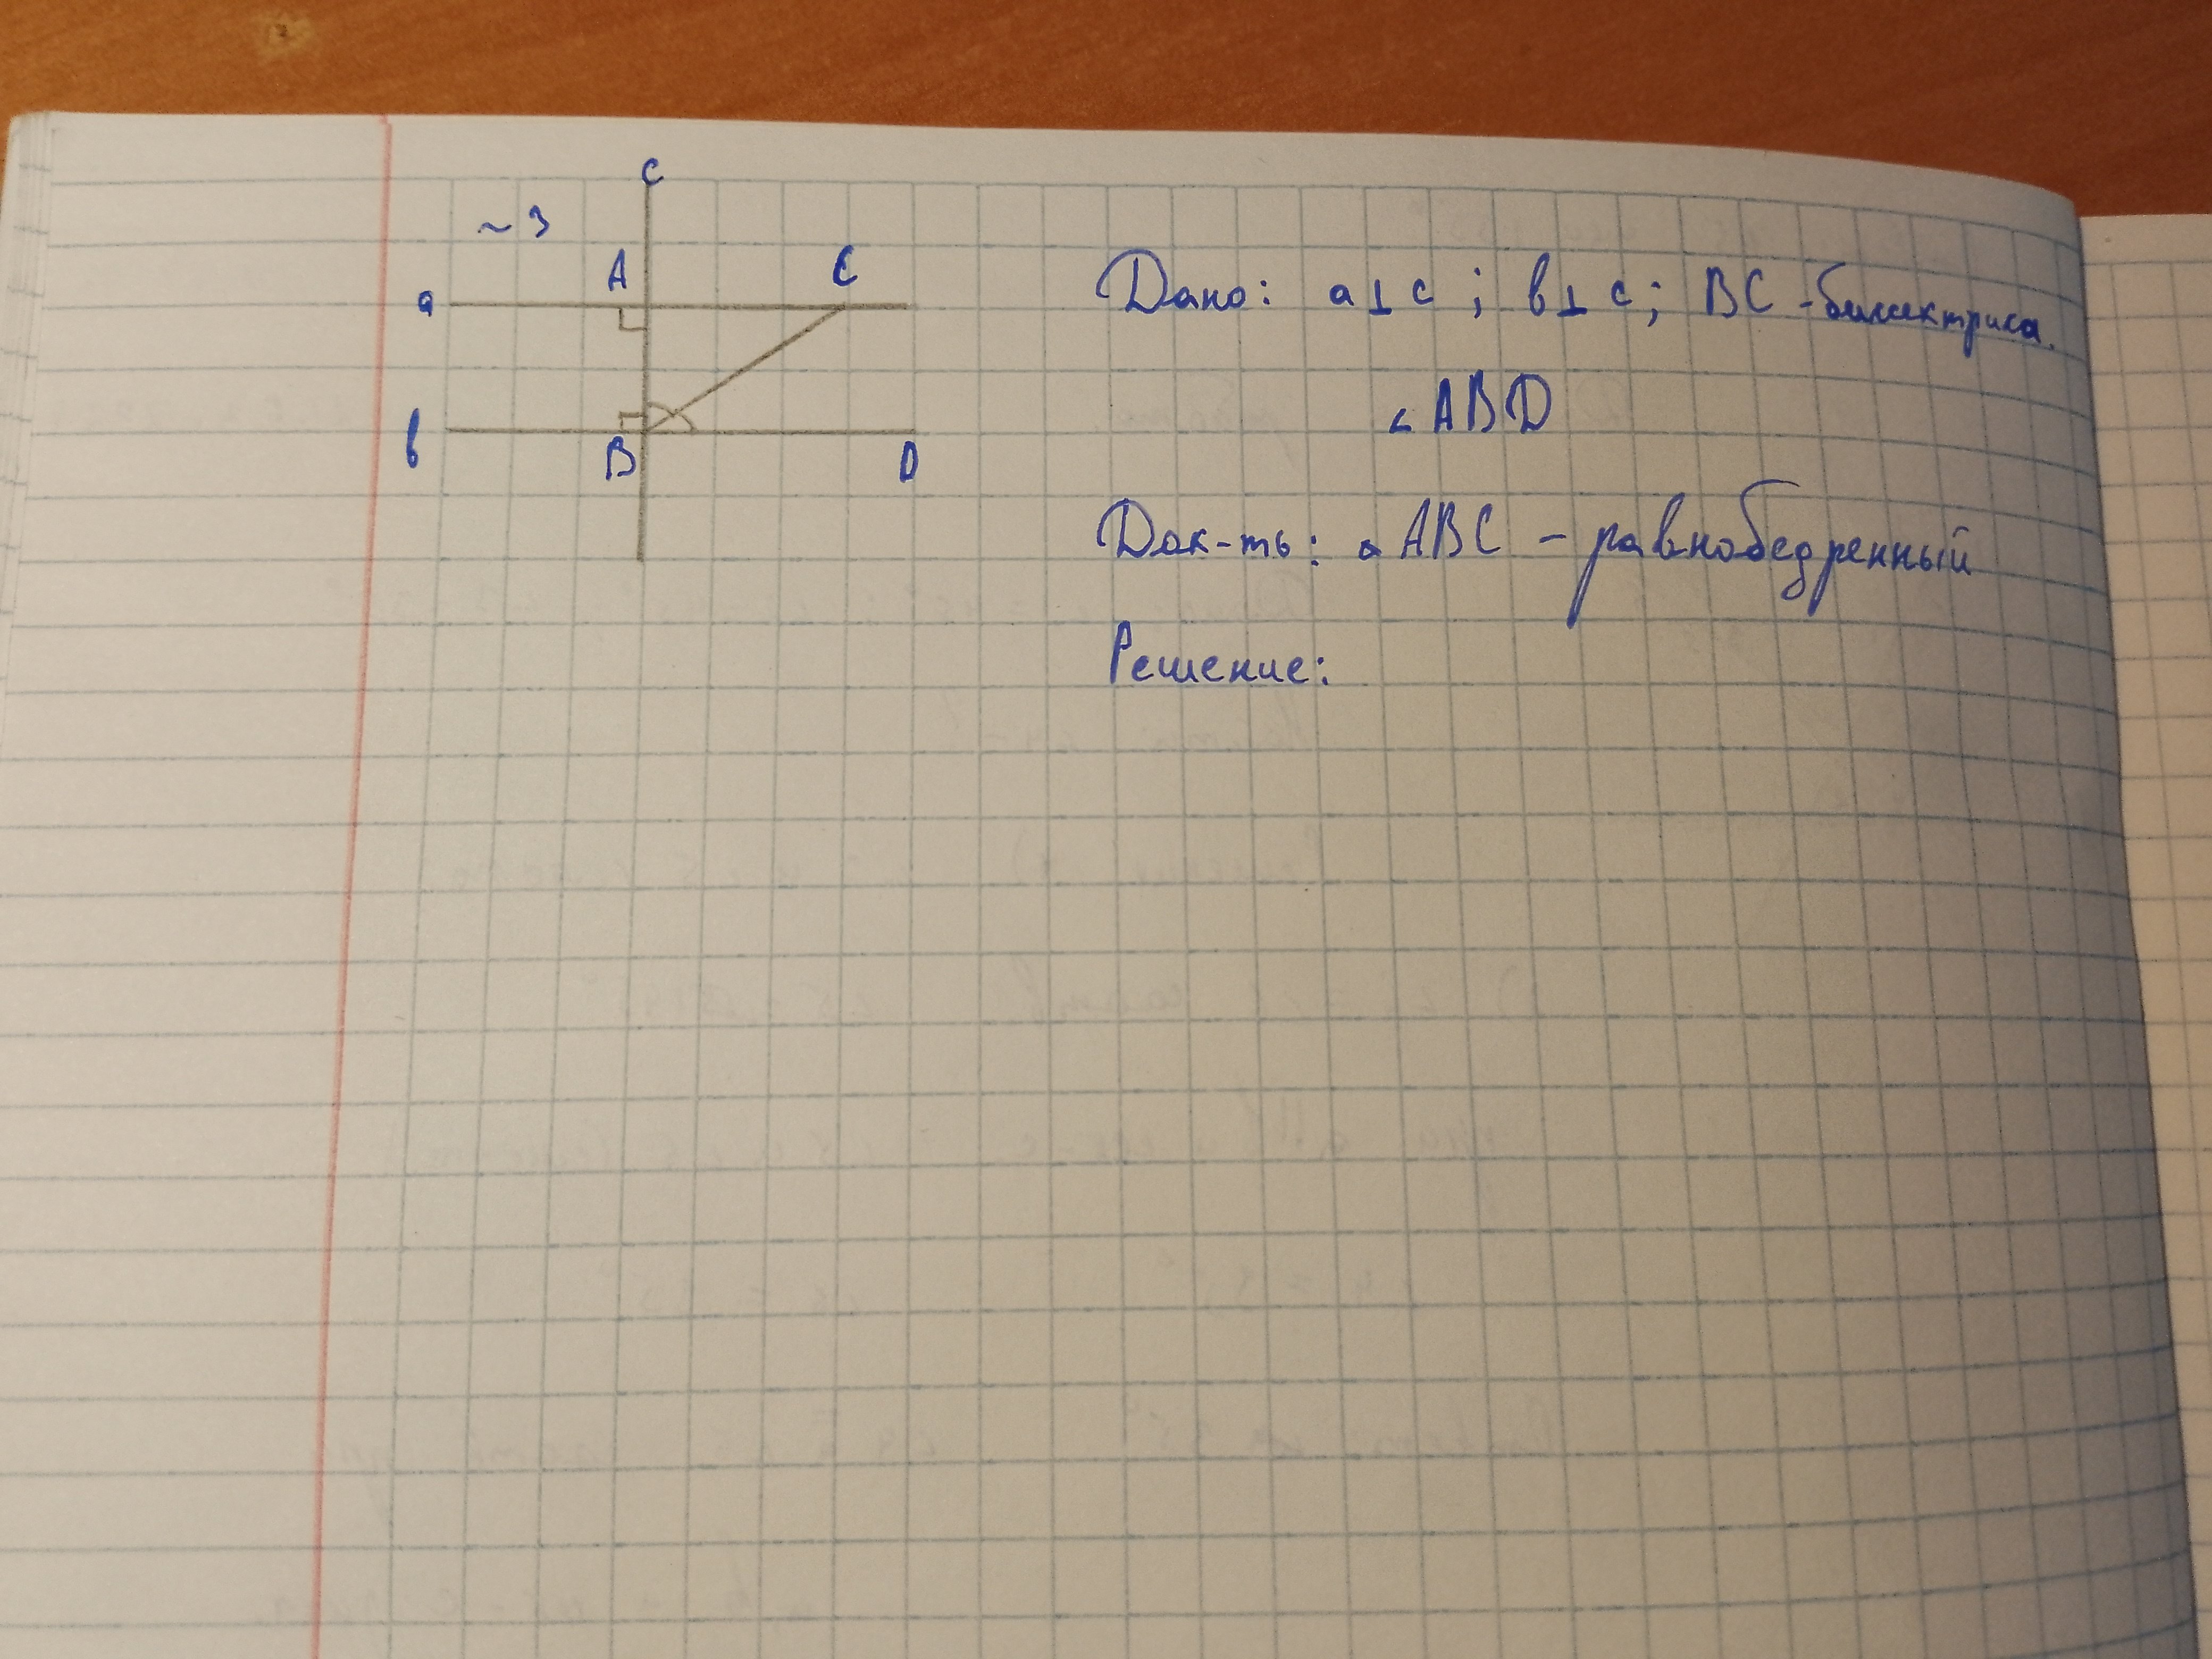 c
~ 3
A C
a
в
B D
Дано: a⊥c ; в⊥c; BC - биссектриса.
∠ABD
Док-ть: △ABC - равнобедренный
Решение: